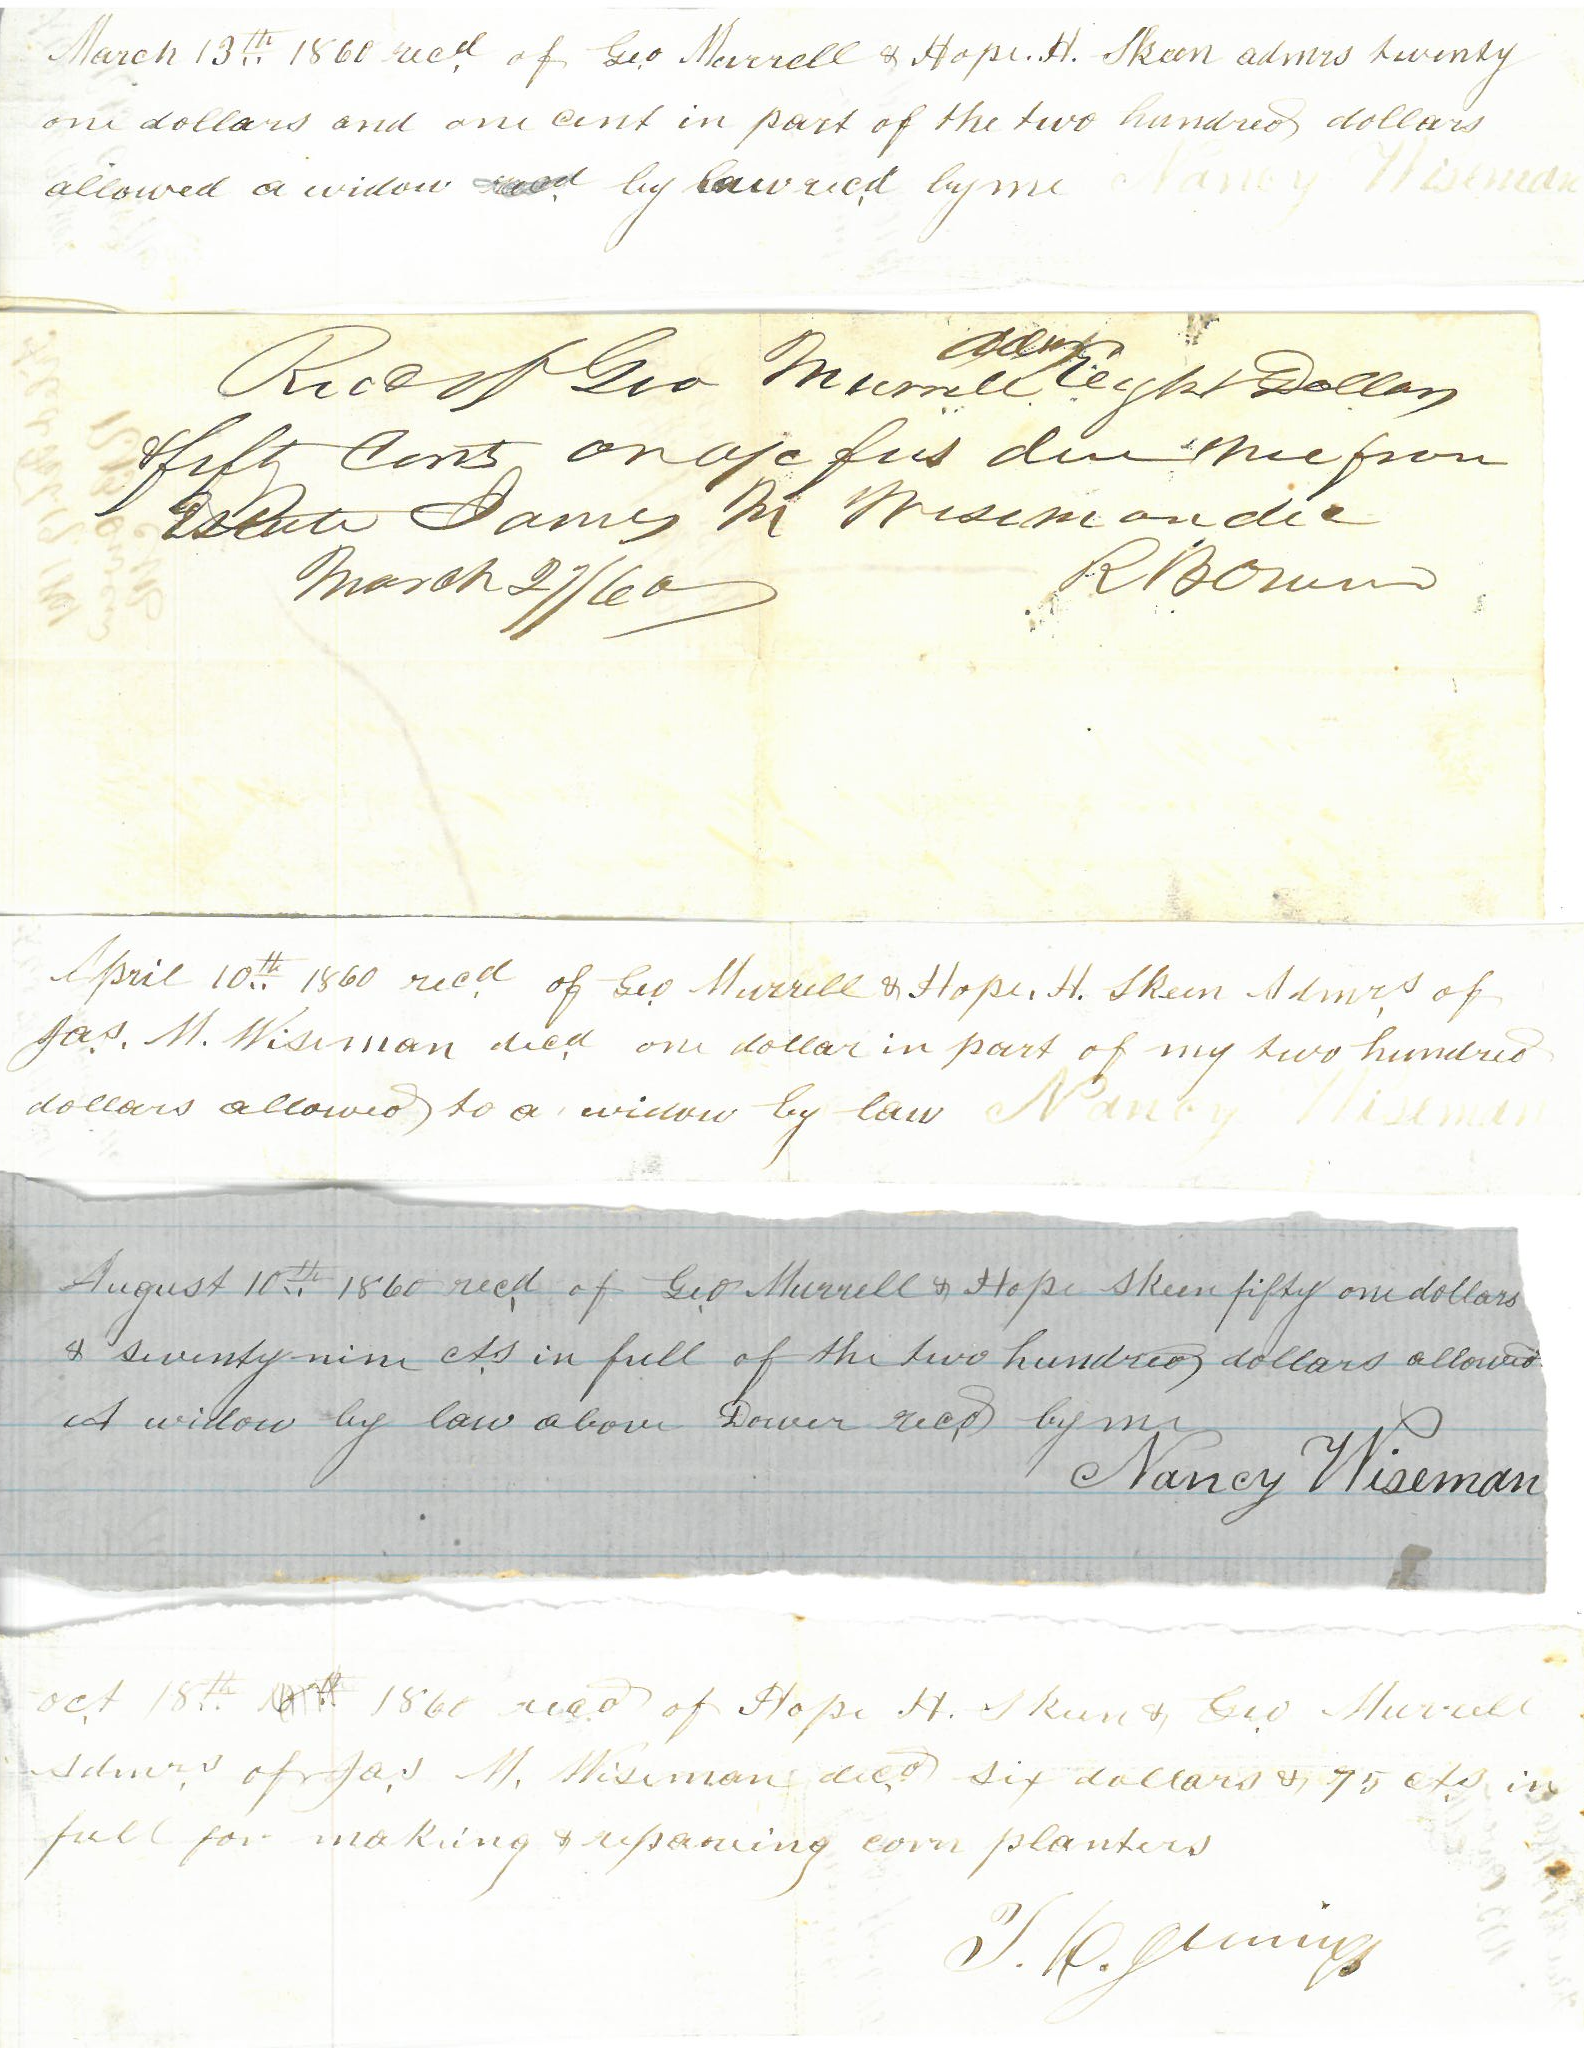 March 13th 1860 recd of Geo Murrell & Hope. H. Skeen admrs twenty
one dollars and one cent in part of the two hundred dollars
allowed a widow by law recd by me Nancy Wiseman
Recd of Geo Murrell adm Eight Dollars
& fifty Cents on a/c fees due me from
Estate James M Wiseman dec
March 27/60 R B Owens
April 10th 1860 recd of Geo Murrell & Hope. H. Skeen Admrs of
Jas. M. Wiseman decd one dollar in part of my two hundred
dollars allowed to a widow by law Nancy Wiseman
August 10th 1860 recd of Geo Murrell & Hope Skeen fifty one dollars
& seventy-nine cts in full of the two hundred dollars allowed
A widow by law above Dower recd by me
Nancy Wiseman
oct 18th 1860 recd of Hope H. Skeen & Geo Murrell
Admrs of Jas M. Wiseman decd six dollars & 75 cts in
full for making & repareing corn planters
T. H. Jennings